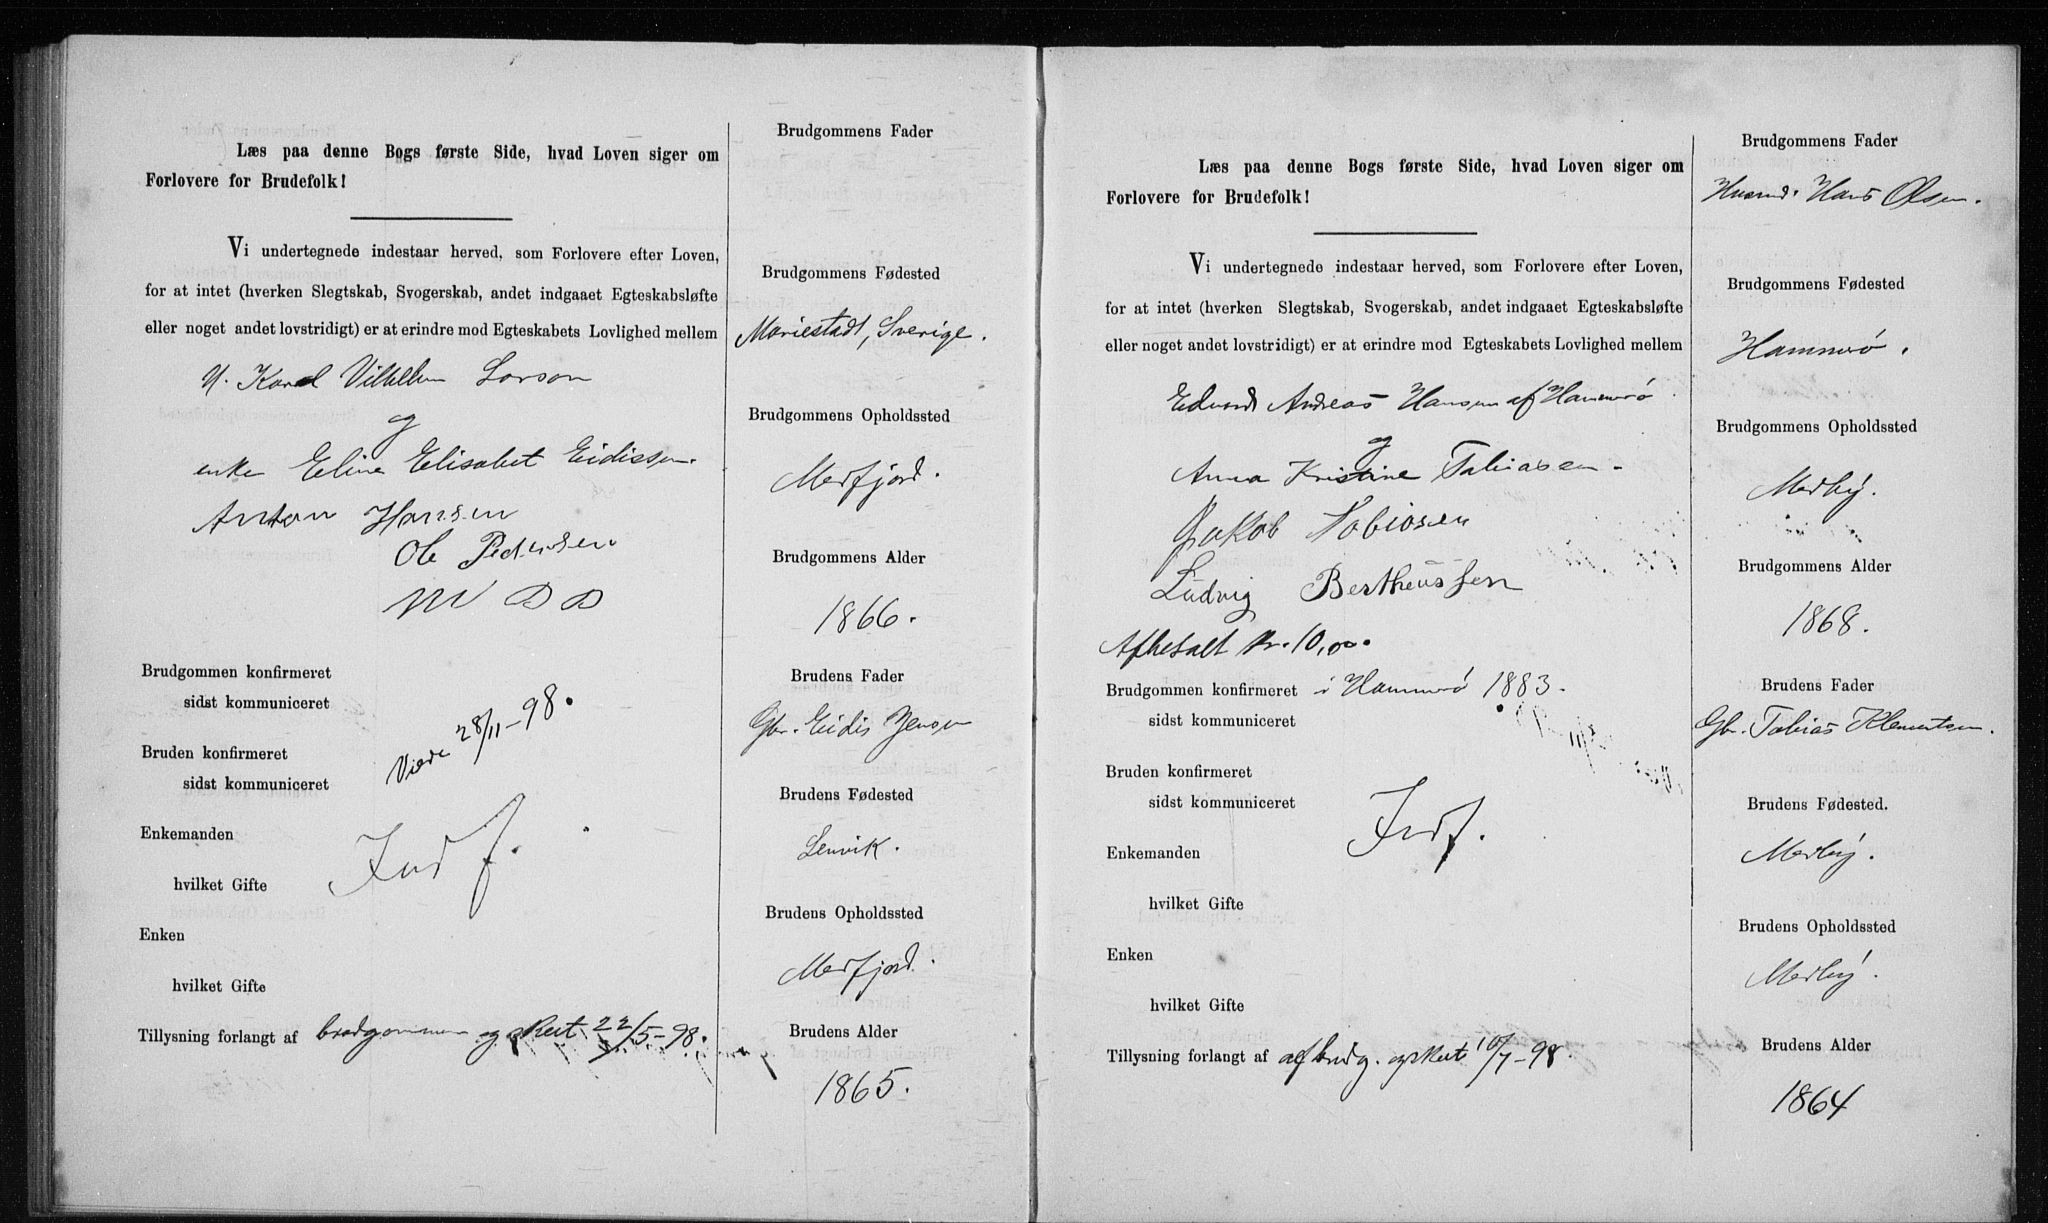 Læs paa denne Bogs første Side, hvad Loven siger om
Forlovere for Brudefolk!
Vi undertegnede indestaar herved, som Forlovere efter Loven,
for at intet (hverken Slegtskab, Svogerskab, andet indgaaet Egteskabsløfte
eller noget andet lovstridigt) er at erindre mod Egteskabets Lovlighed mellem
Karl Vilhelm Larson
og
enke Eline Elisabet Eidissen.
Anton Hansen
Ole Pedersen
Brudgommen konfirmeret
sidst kommuniceret
Viede 28/11-98.
Bruden konfirmeret
sidst kommuniceret
Enkemanden
Indf.
hvilket Gifte
Enken
hvilket Gifte
Tillysning forlangt af brudgommen og skeet 22/5-98.
Brudgommens Fader
Brudgommens Fødested
Mariestadt, Sverige.
Brudgommens Opholdssted
Mefjord.
Brudgommens Alder
1866.
Brudens Fader
Gbr. Eidis Jensen
Brudens Fødested
Lenvik.
Brudens Opholdssted
Mefjord.
Brudens Alder
1865.
Læs paa denne Bogs første Side, hvad Loven siger om
Forlovere for Brudefolk!
Vi undertegnede indestaar herved, som Forlovere efter Loven,
for at intet (hverken Slegtskab, Svogerskab, andet indgaaet Egteskabsløfte
eller noget andet lovstridigt) er at erindre mod Egteskabets Lovlighed mellem
Edvard Andreas Hansen af Hammerø
og
Anna Kristine Tobiasen.
Jakob Tobiasen
Ludvig Bertheussen
Afbetalt kr. 10,00.
Brudgommen konfirmeret i Hammerø 1883.
sidst kommuniceret
Bruden konfirmeret
sidst kommuniceret
Indf.
Enkemanden
hvilket Gifte
Enken
hvilket Gifte
Tillysning forlangt af af brudg. og skeet 10/7-98.
Brudgommens Fader
Husmd. Hans Olsen.
Brudgommens Fødested
Hammerø.
Brudgommens Opholdssted
Medby.
Brudgommens Alder
1868.
Brudens Fader
Gbr. Tobias Klementsen.
Brudens Fødested.
Medby.
Brudens Opholdssted
Medby.
Brudens Alder
1864